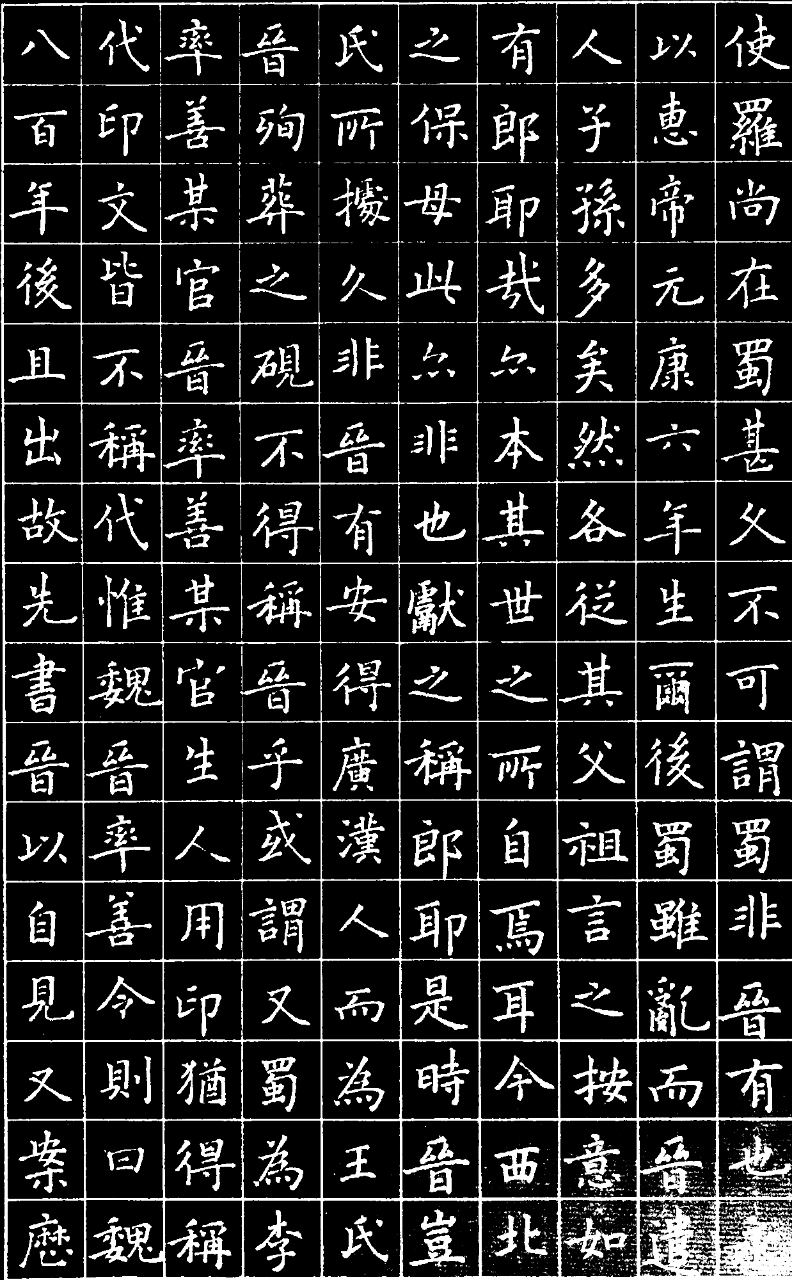 使羅尚在蜀甚久不可謂蜀非晉有也
以惠帝元康六年生爾後蜀雖亂而晉遣
人子孫多矣然各從其父祖言之按意如
有郎耶哉亦本其世之所自焉耳今西北
之保母此亦非也獻之稱郎耶是時晉豈
氏所據久非晉有安得廣漢人而為王氏
晉殉葬之硯不得稱晉乎或謂又蜀為李
率善某官晉率善某官生人用印猶得稱
代印文皆不稱代惟魏晉率善令則曰魏
八百年後且出故先書晉以自見又案曆